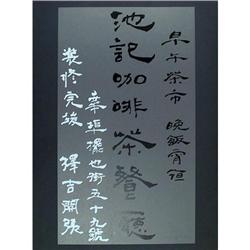 早午茶市 晚飯宵
池記咖啡茶餐廳
華埠擺也街五十九號
裝修完竣 擇吉開張